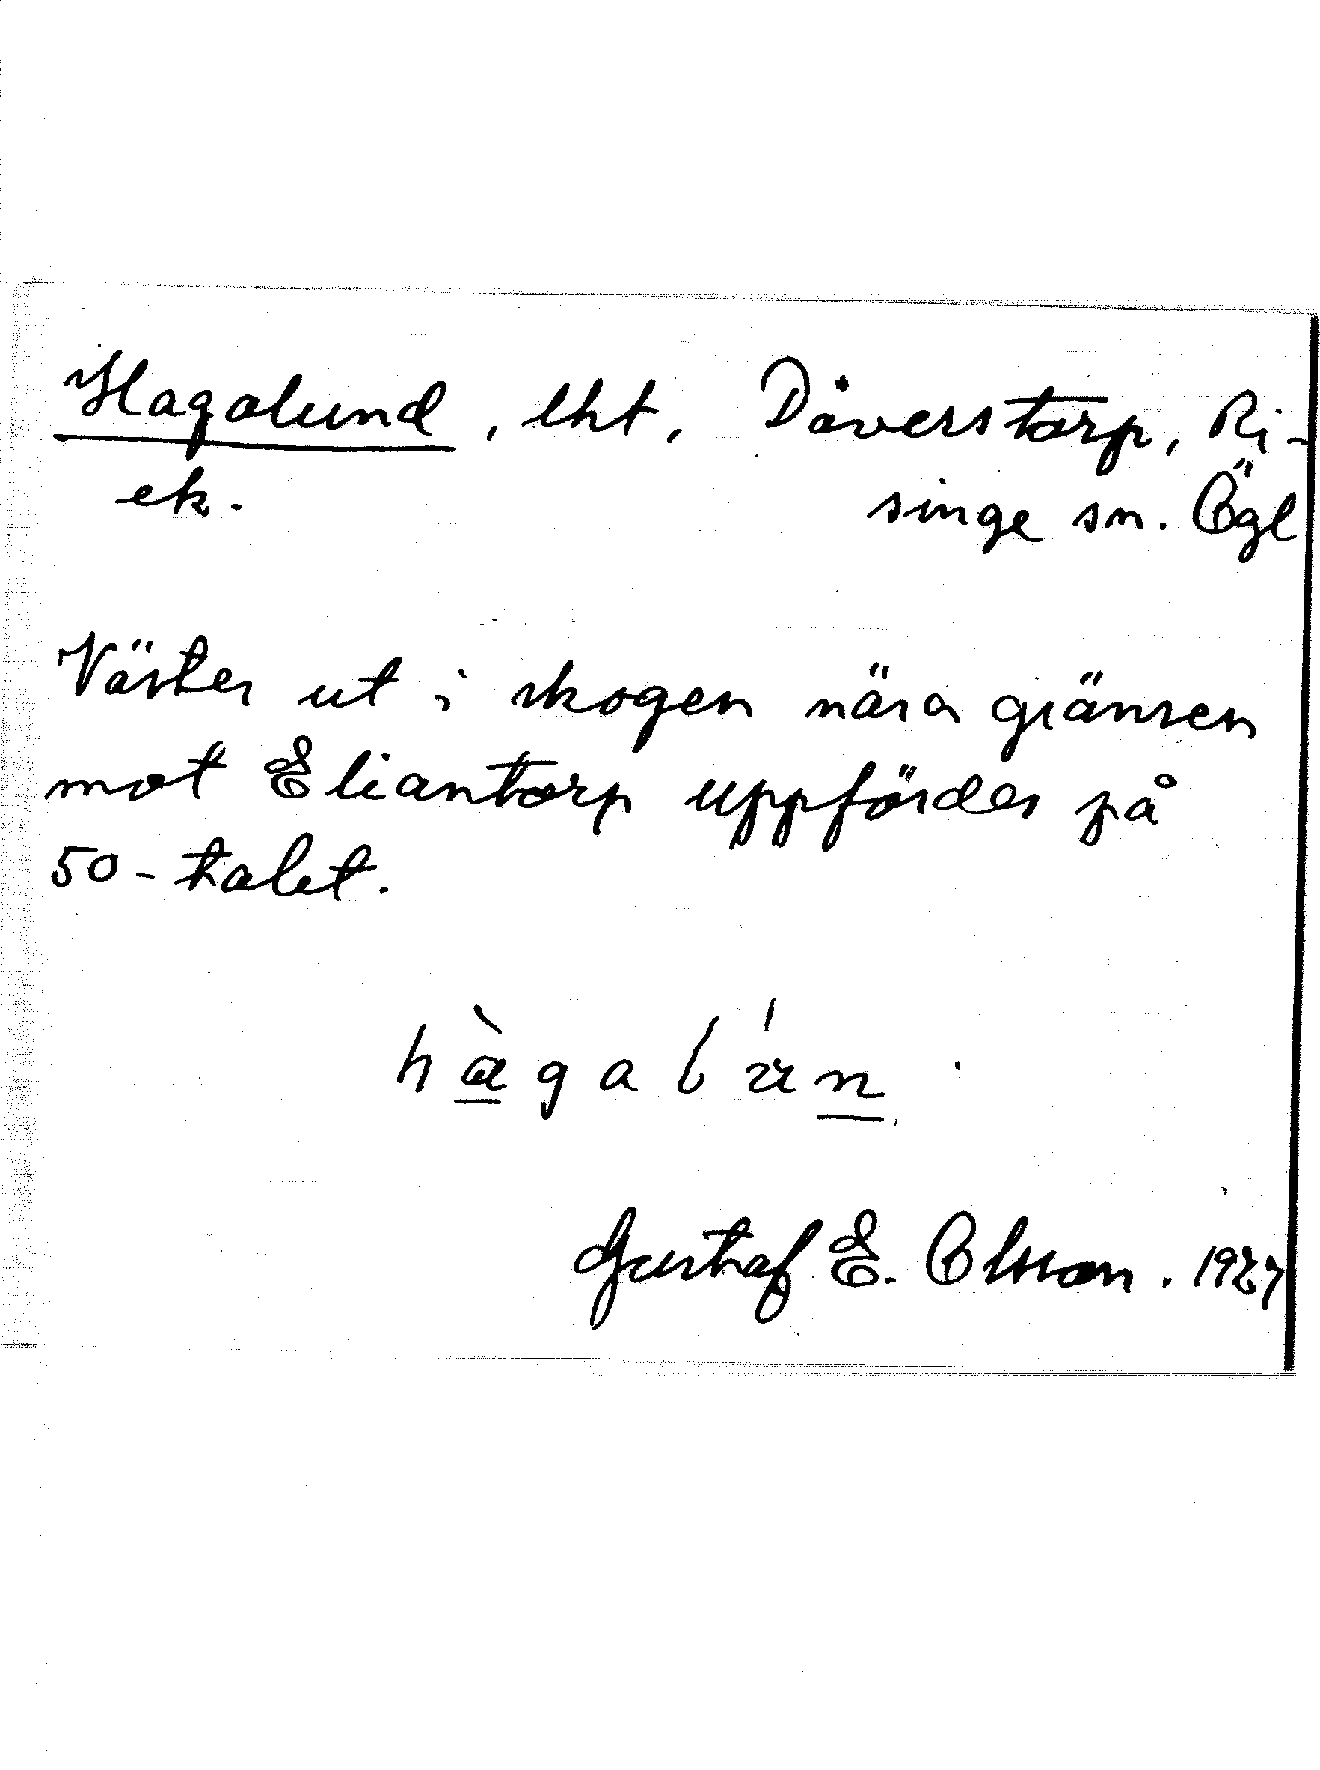 Hagalund, lht, Dåverstorp, Ri-
ek. singe sn. Ögl
Väster ut i skogen nära gränsen
mot Eliantorp uppfördes på
50-talet.
Gustaf E. Olsson. 1927